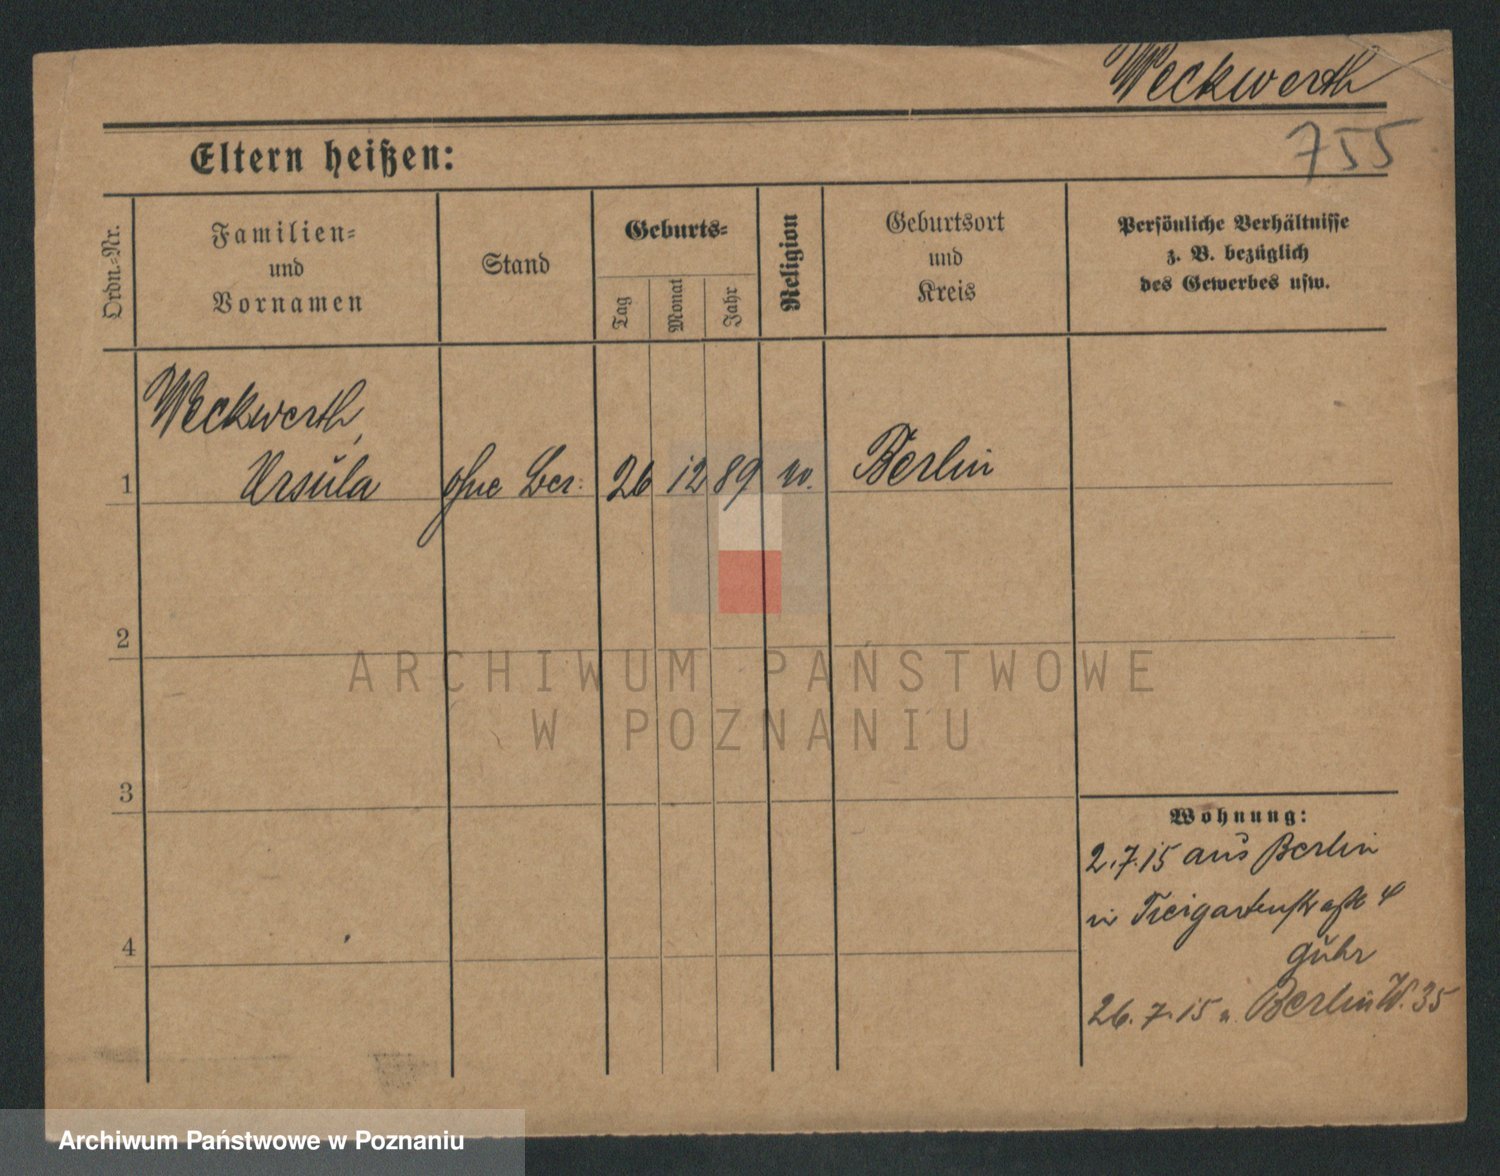 Weckwerth
755
Eltern heißen:
Ordn.=Nr.
Familien=
und
Vornamen
Stand
Geburts=
Tag
Monat
Jahr
Religion
Geburtsort
und
Kreis
Persönliche Verhältnisse
z. B. bezüglich
des Gewerbes usw.
Weckwerth,
1 Ursula ohne Ber: 26 12 89 Berlin
2
ARCHIWUM PAŃSTWOWE
W POZNANIU
3
Wohnung:
2.7.15 aus Berlin
in Tiergartenstraße 4
4
Guhr
26.7.15 n. Berlin W. 35
Archiwum Państwowe w Poznaniu